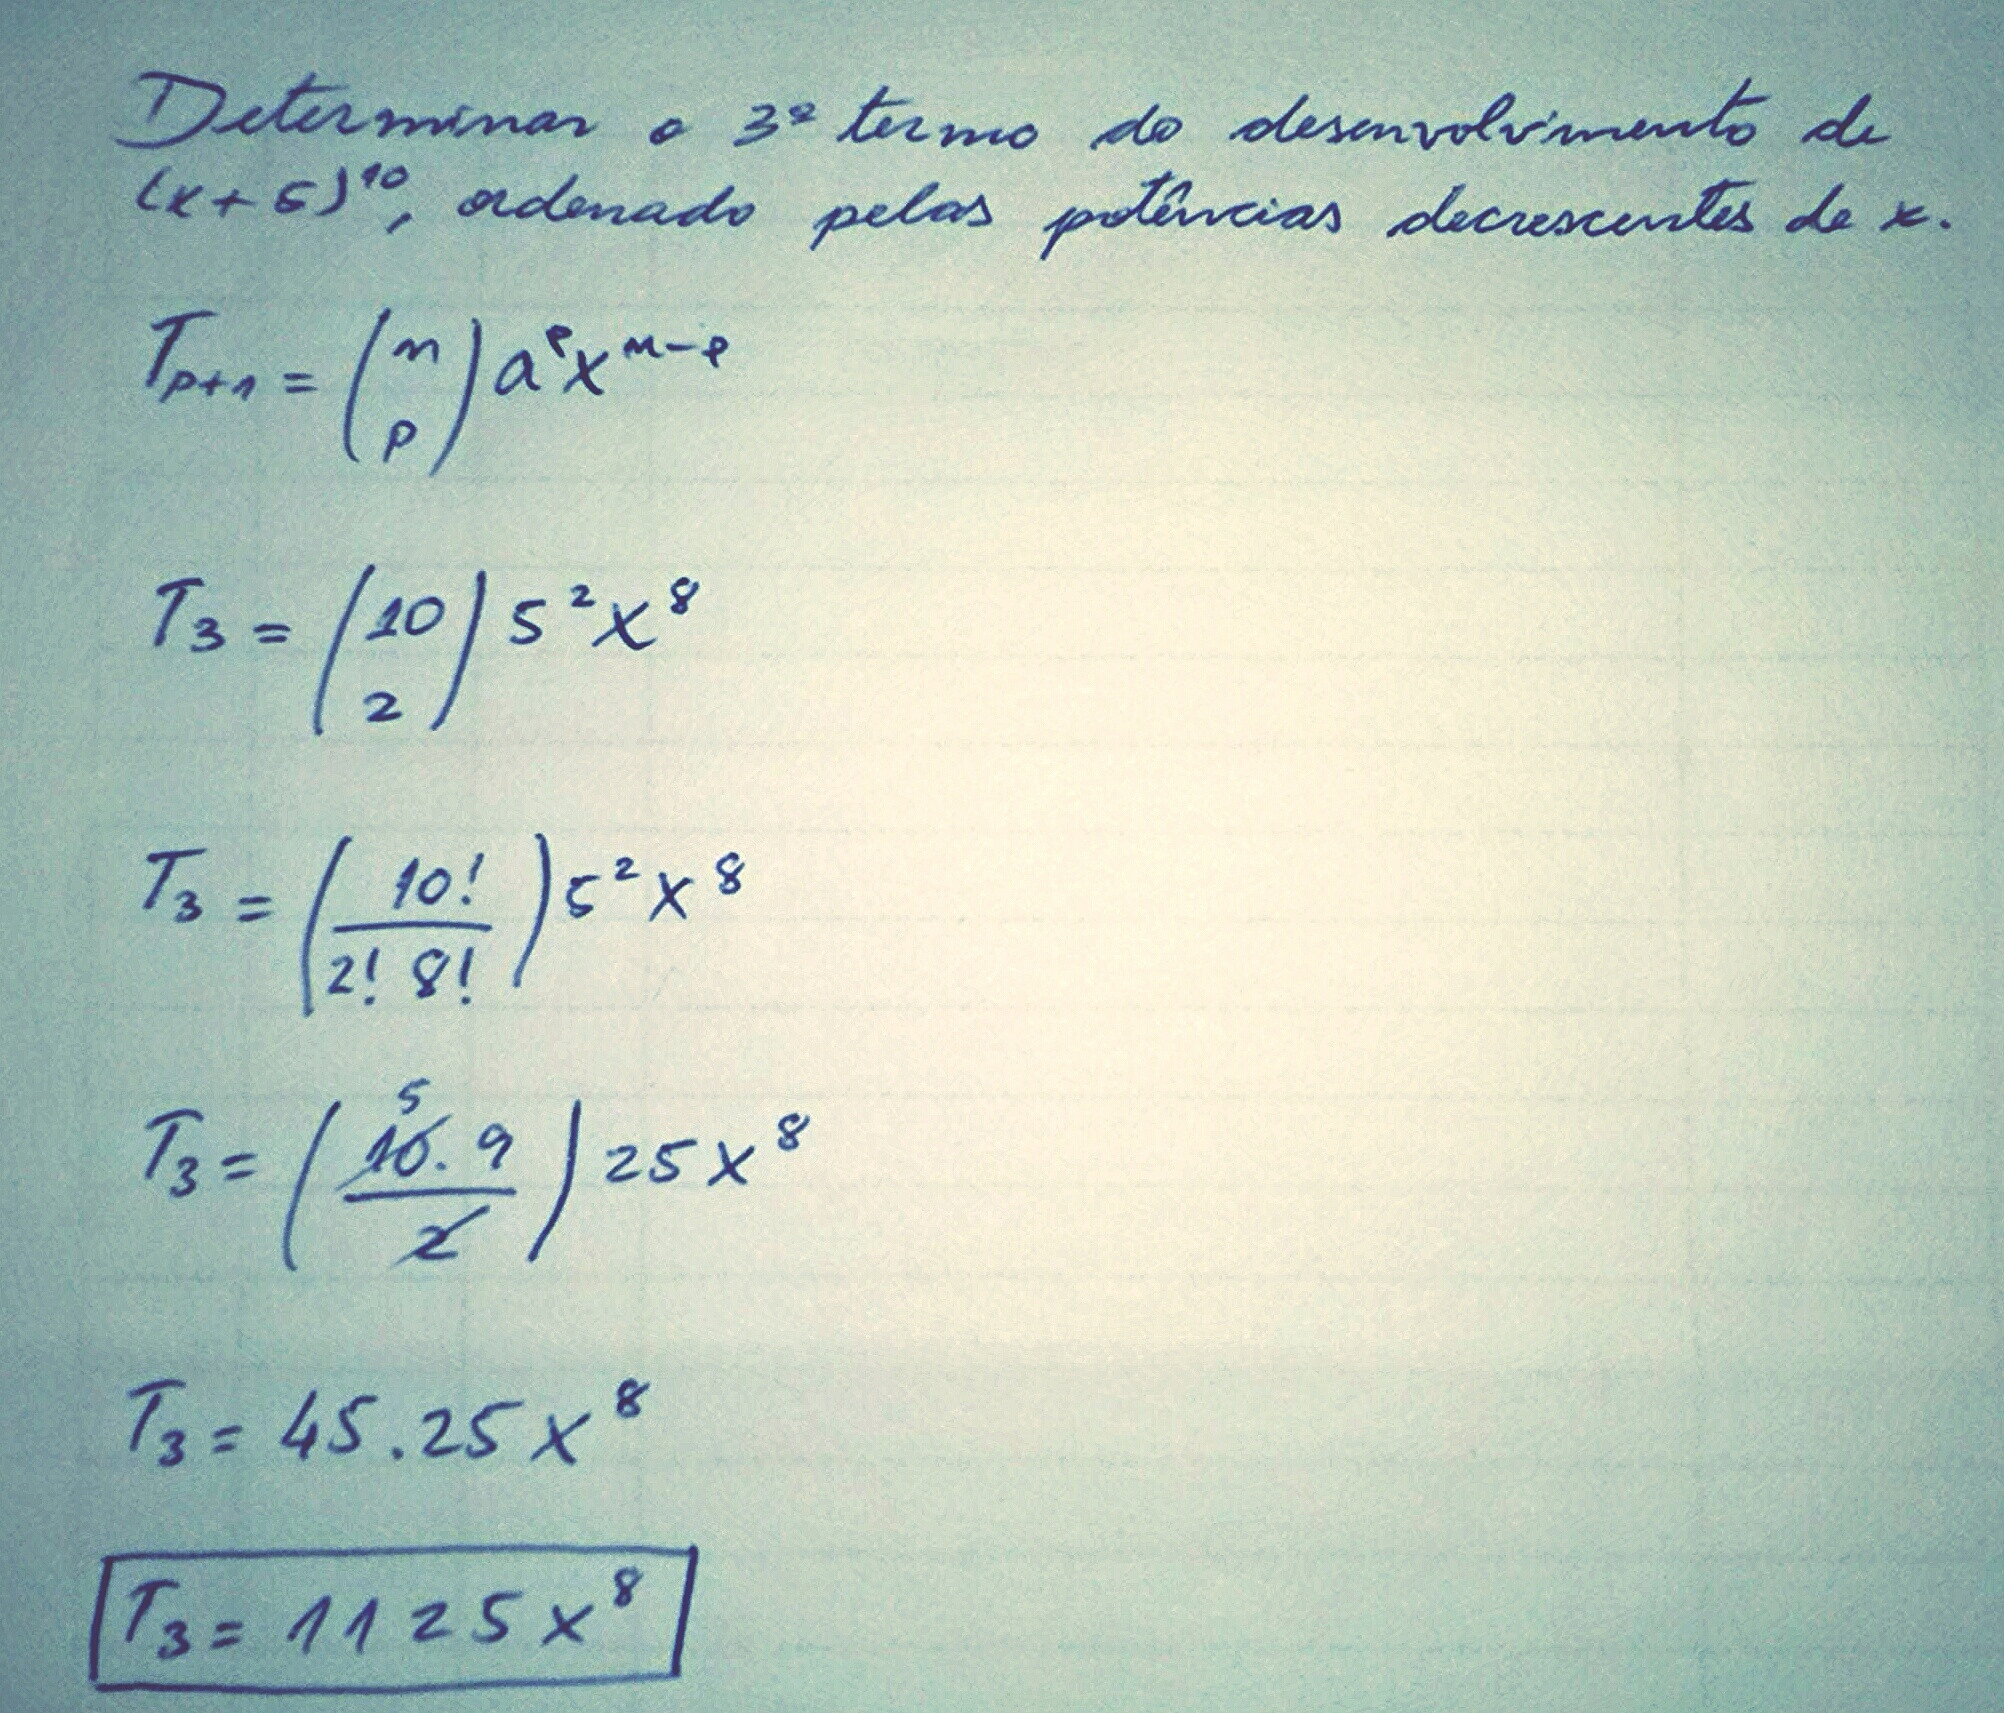 Determinar o 3º termo do desenvolvimento de
(x+5)¹⁰, ordenado pelas potências decrescentes de x.
Tₚ₊₁ = (n p) aᵖxⁿ⁻ᵖ
T₃ = (10 2) 5²x⁸
T₃ = (10! / 2! 8!) 5²x⁸
5
T₃ = (10.9 / 2) 25x⁸
T₃ = 45.25x⁸
T₃ = 1125x⁸